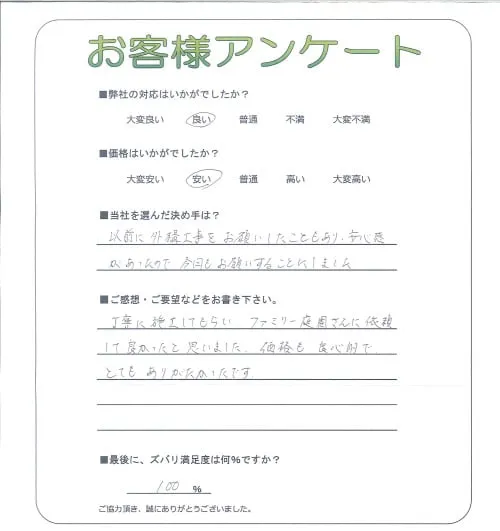 お客様アンケート
■弊社の対応はいかがでしたか？
大変良い 良い 普通 不満 大変不満
■価格はいかがでしたか？
大変安い 安い 普通 高い 大変高い
■当社を選んだ決め手は？
以前に外構工事をお願いしたこともあり、安心感
があったので今回もお願いすることにしました
■ご感想・ご要望などをお書き下さい。
丁寧に施工してもらい ファミリー庭園さんに依頼
して良かったと思いました。価格も良心的で
とてもありがたかったです。
■最後に、ズバリ満足度は何%ですか？
100 %
ご協力頂き、誠にありがとうございました。